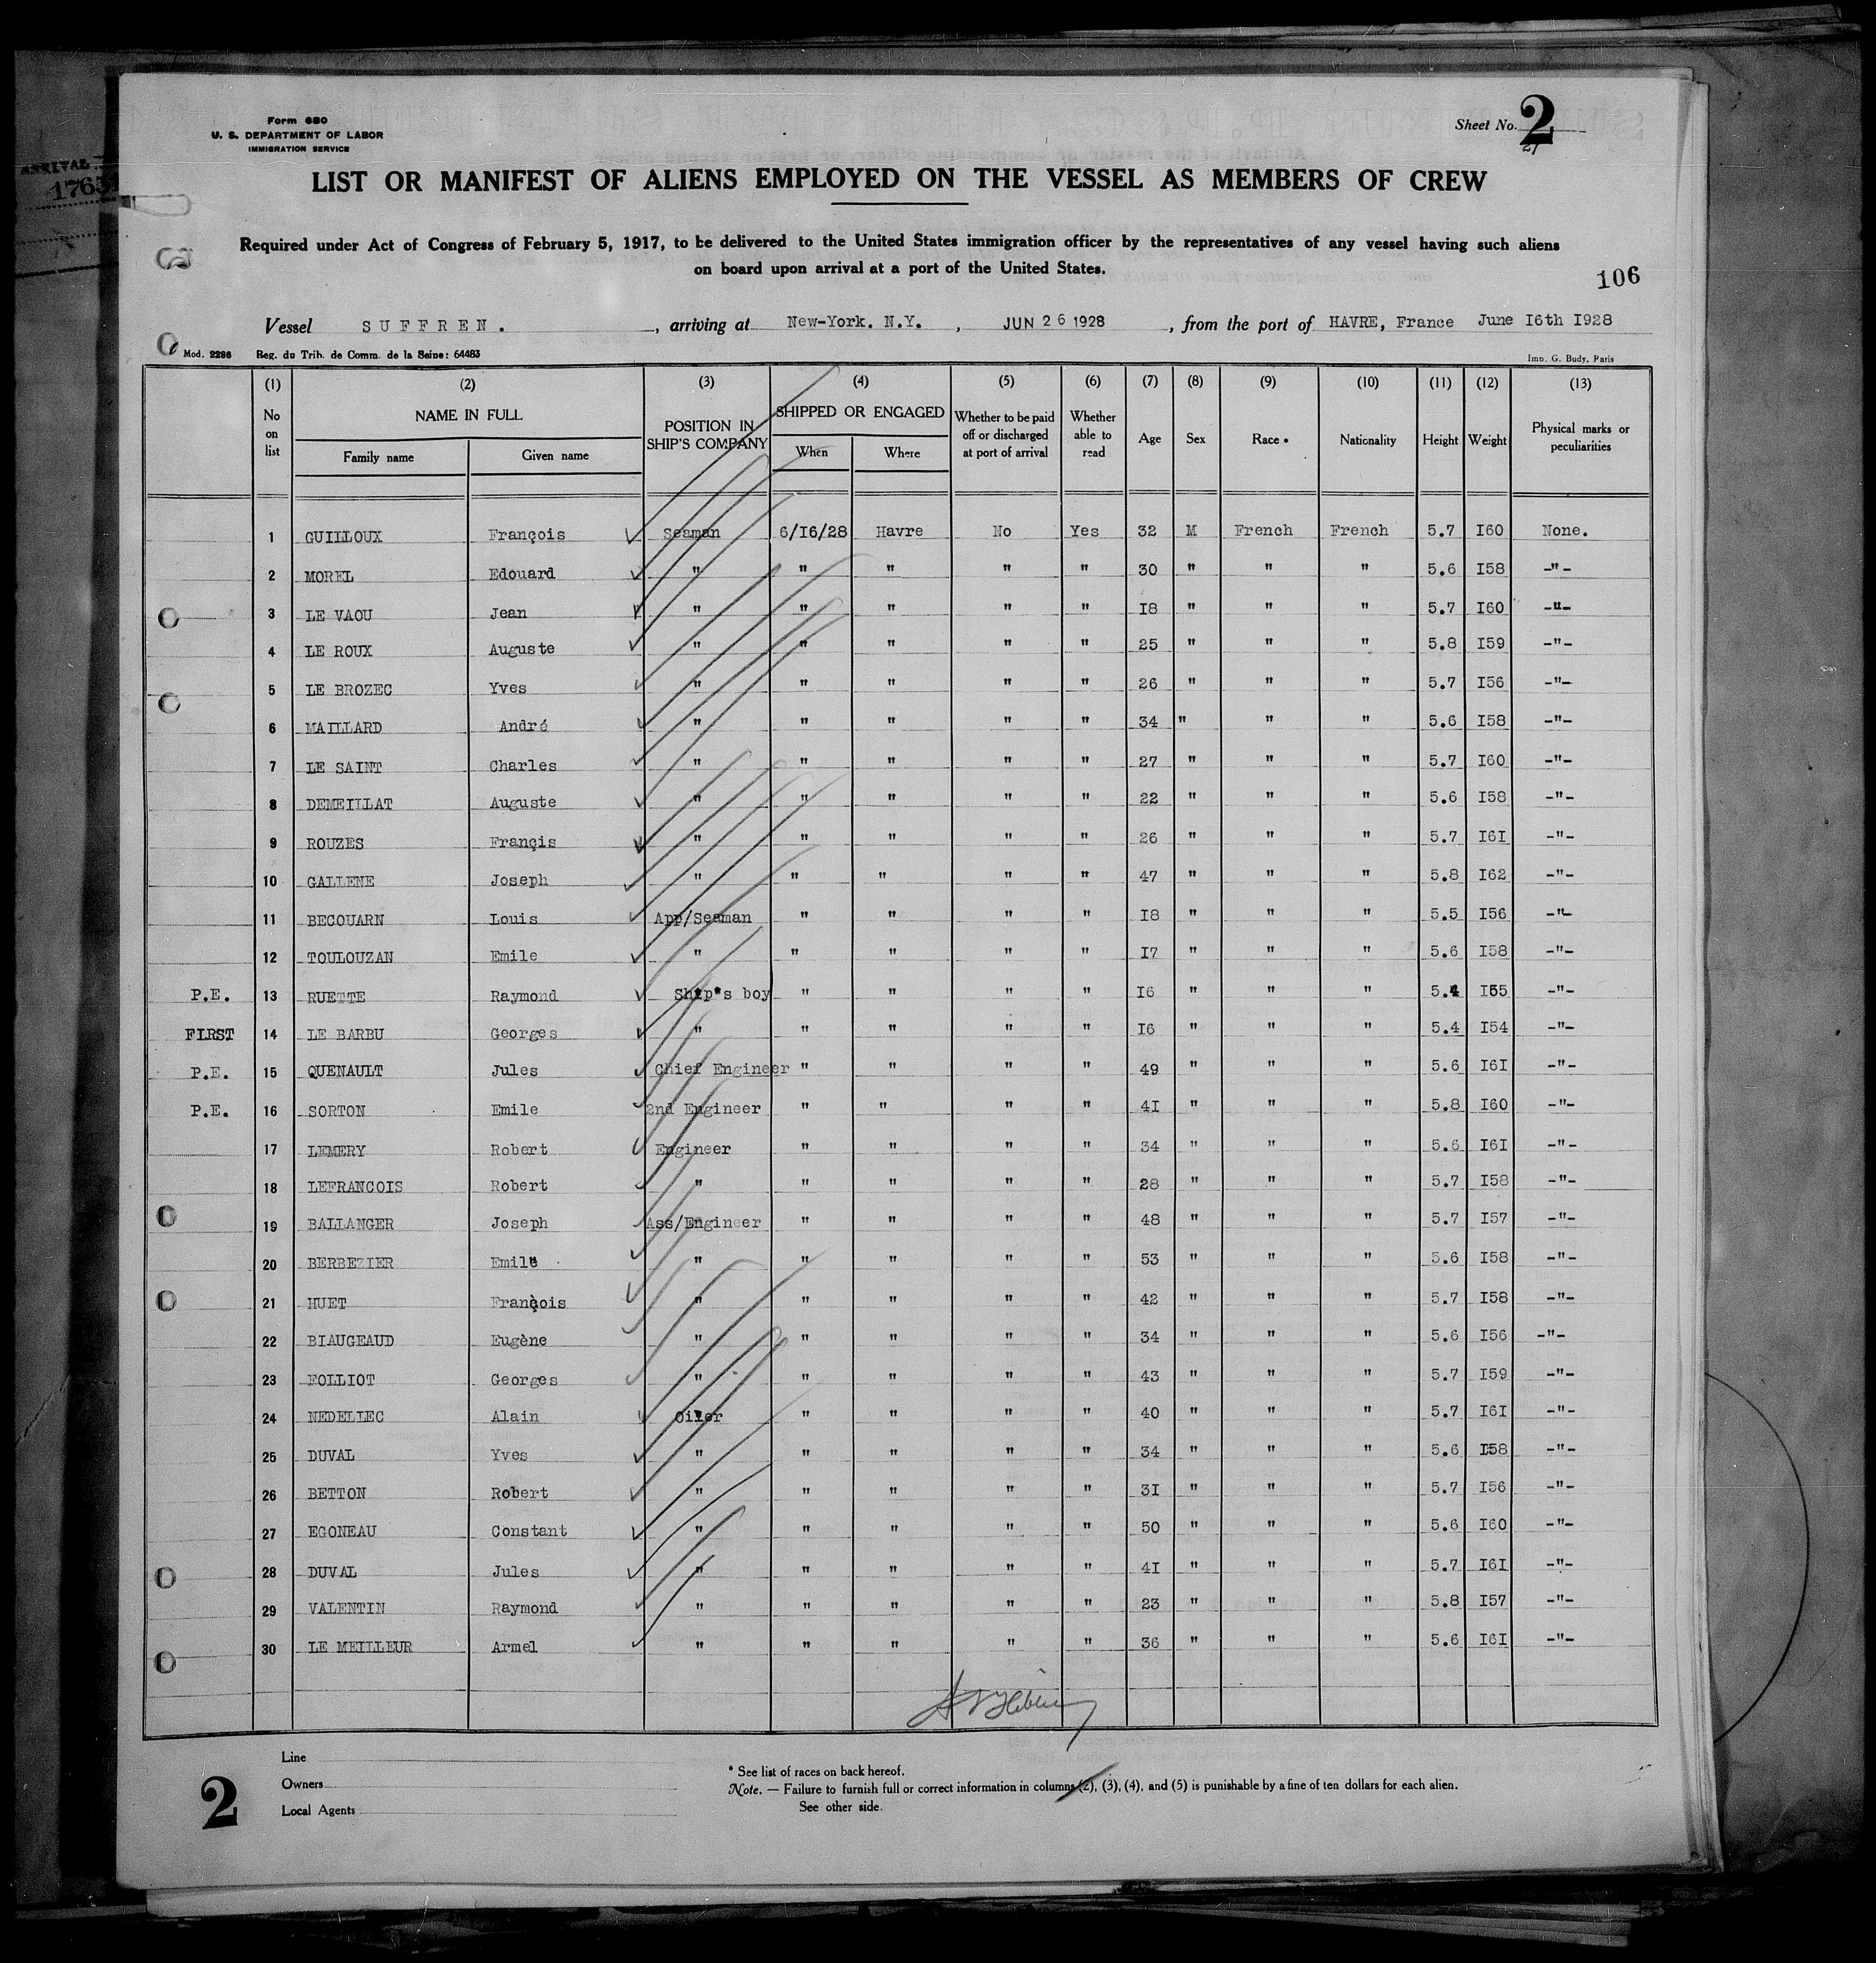 Form 680
U. S. DEPARTMENT OF LABOR
IMMIGRATION SERVICE
Sheet No. 2
ARRIVAL
LIST OR MANIFEST OF ALIENS EMPLOYED ON THE VESSEL AS MEMBERS OF CREW
Required under Act of Congress of February 5, 1917, to be delivered to the United States immigration officer by the representatives of any vessel having such aliens
on board upon arrival at a port of the United States.
106
Vessel SUFFREN. , arriving at New-York. N.Y. , JUN 26 1928 , from the port of HAVRE, France June I6th I928
Mod. 2286 Reg. du Trib. de Comm. de la Seine: 64483 Imp. G. Budy, Paris
(1) (2) (3) (4) (5) (6) (7) (8) (9) (10) (11) (12) (13)
No on list NAME IN FULL Family name Given name POSITION IN SHIP'S COMPANY SHIPPED OR ENGAGED When Where Whether to be paid off or discharged at port of arrival Whether able to read Age Sex Race * Nationality Height Weight Physical marks or peculiarities
1 GUILLOUX François Seaman 6/I6/28 Havre No Yes 32 M French French 5.7 I60 None.
2 MOREL Edouard " " " " " 30 " " " 5.6 I58 -"-
3 LE VAOU Jean " " " " " I8 " " " 5.7 I60 -"-
4 LE ROUX Auguste " " " " " 25 " " " 5.8 I59 -"-
5 LE BROZEC Yves " " " " " 26 " " " 5.7 I56 -"-
6 MAILLARD André " " " " " 34 " " " 5.6 I58 -"-
7 LE SAINT Charles " " " " " 27 " " " 5.7 I60 -"-
8 DEMEILLAT Auguste " " " " " 22 " " " 5.6 I58 -"-
9 ROUZES Françis " " " " " 26 " " " 5.7 I6I -"-
10 GALLENE Joseph " " " " " 47 " " " 5.8 I62 -"-
11 BECOUARN Louis App/Seaman " " " " I8 " " " 5.5 I56 -"-
12 TOULOUZAN Emile " " " " " I7 " " " 5.6 I58 -"-
P.E. 13 RUETTE Raymond Ship's boy " " " " I6 " " " 5.4 I55 -"-
FIRST 14 LE BARBU Georges " " " " " I6 " " " 5.4 I54 -"-
P.E. 15 QUENAULT Jules Chief Engineer " " " " 49 " " " 5.6 I6I -"-
P.E. 16 SORTON Emile 2nd Engineer " " " " 4I " " " 5.8 I60 -"-
17 LEMERY Robert Engineer " " " " 34 " " " 5.6 I6I -"-
18 LEFRANCOIS Robert " " " " " 28 " " " 5.7 I58 -"-
19 BALLANGER Joseph Ass/Engineer " " " " 48 " " " 5.7 I57 -"-
20 BERBEZIER Emile " " " " " 53 " " " 5.6 I58 -"-
21 HUET François " " " " " 42 " " " 5.7 I58 -"-
22 BIAUGEAUD Eugène " " " " " 34 " " " 5.6 I56 -"-
23 FOLLIOT Georges " " " " " 43 " " " 5.7 I59 -"-
24 NEDELLEC Alain Oiler " " " " 40 " " " 5.7 I6I -"-
25 DUVAL Yves " " " " " 34 " " " 5.6 I58 -"-
26 BETTON Robert " " " " " 3I " " " 5.7 I56 -"-
27 EGONEAU Constant " " " " " 50 " " " 5.6 I60 -"-
28 DUVAL Jules " " " " " 4I " " " 5.7 I6I -"-
29 VALENTIN Raymond " " " " " 23 " " " 5.8 I57 -"-
30 LE MEILLEUR Armel " " " " " 36 " " " 5.6 I6I -"-
2
Line
Owners
Local Agents
* See list of races on back hereof.
Note. — Failure to furnish full or correct information in columns (2), (3), (4), and (5) is punishable by a fine of ten dollars for each alien.
See other side.